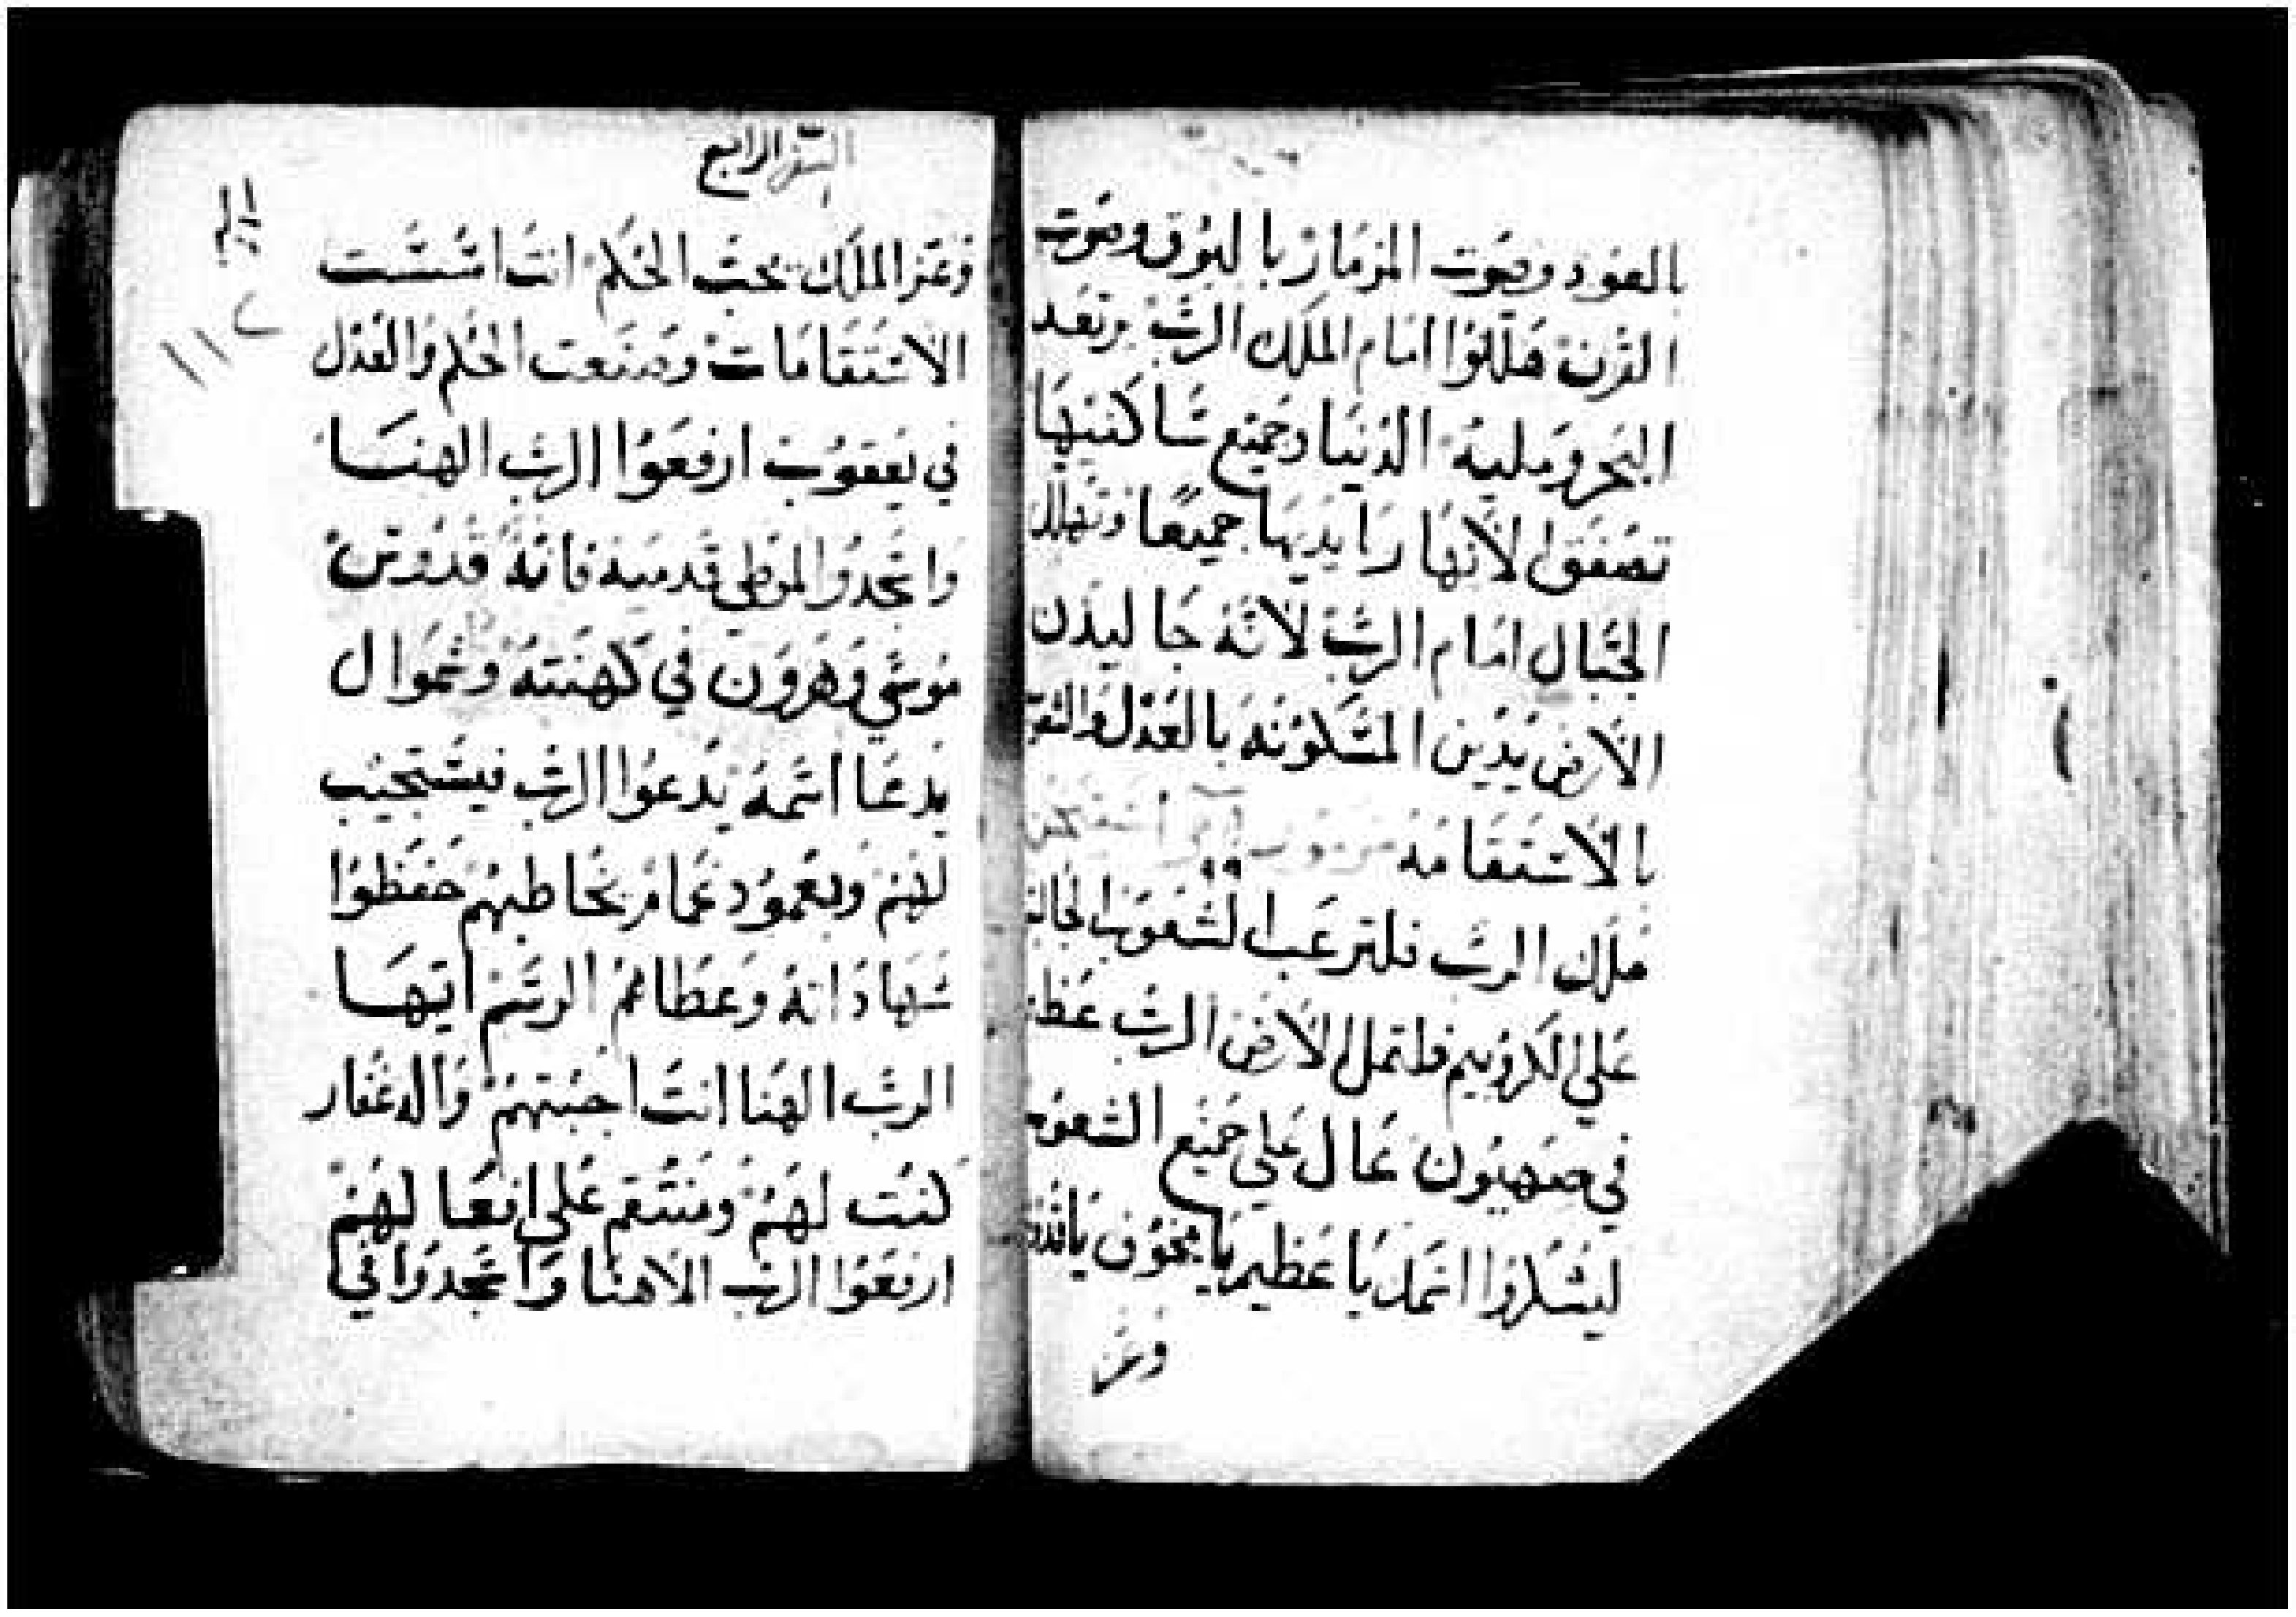 بالعود وصوت المزمار بالبوق وصوت
القرن هللوا امام الملك الرب يرتعد
البحر ومليه الدنيا وجميع ساكنيها
تصفق الانهار بايديها جميعا وتهلل
الجبال امام الرب لانه جا ليدن
الارض يدين المسكونه بالعدل والشعو
بالاستقامه
ملك الرب فلترعب الشعوب الجالس
على الكروبيم فلتمل الارض الرب عظيم
في صهيون عال على جميع الشعوب
ليشكروا اسمك يا عظيم يا مخوف يا قدوس
وعز
السفر الرابع
وعز الملك يحب الحكم انت اسست
الاستقامات وصنعت الحكم والعدل
في يعقوب ارفعوا الرب الهنا
واسجدوا لموطي قدميه فانه قدوس
موسى وهرون في كهنته وشموال
يدعا اسمه يدعوا الرب فيستجيب
لهم وبعمود غمام يخاطبهم حفظوا
شهاداته وعطاهم الرسم ايها
الرب الهنا انت اجبتهم واله غفار
كنت لهم ومنتقم على افعالهم
ارفعوا الرب الاهنا واسجدوا في